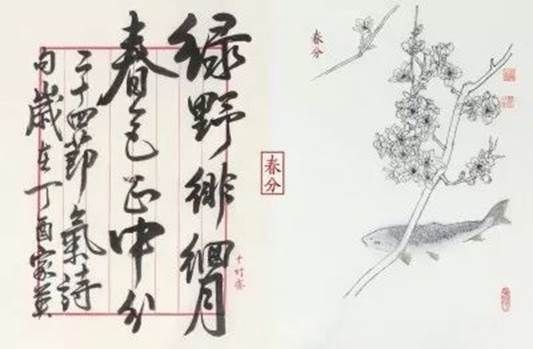 绿野徘徊月
春色正中分
二十四節氣詩
句歲在丁酉家英
十竹斋
春分
春分